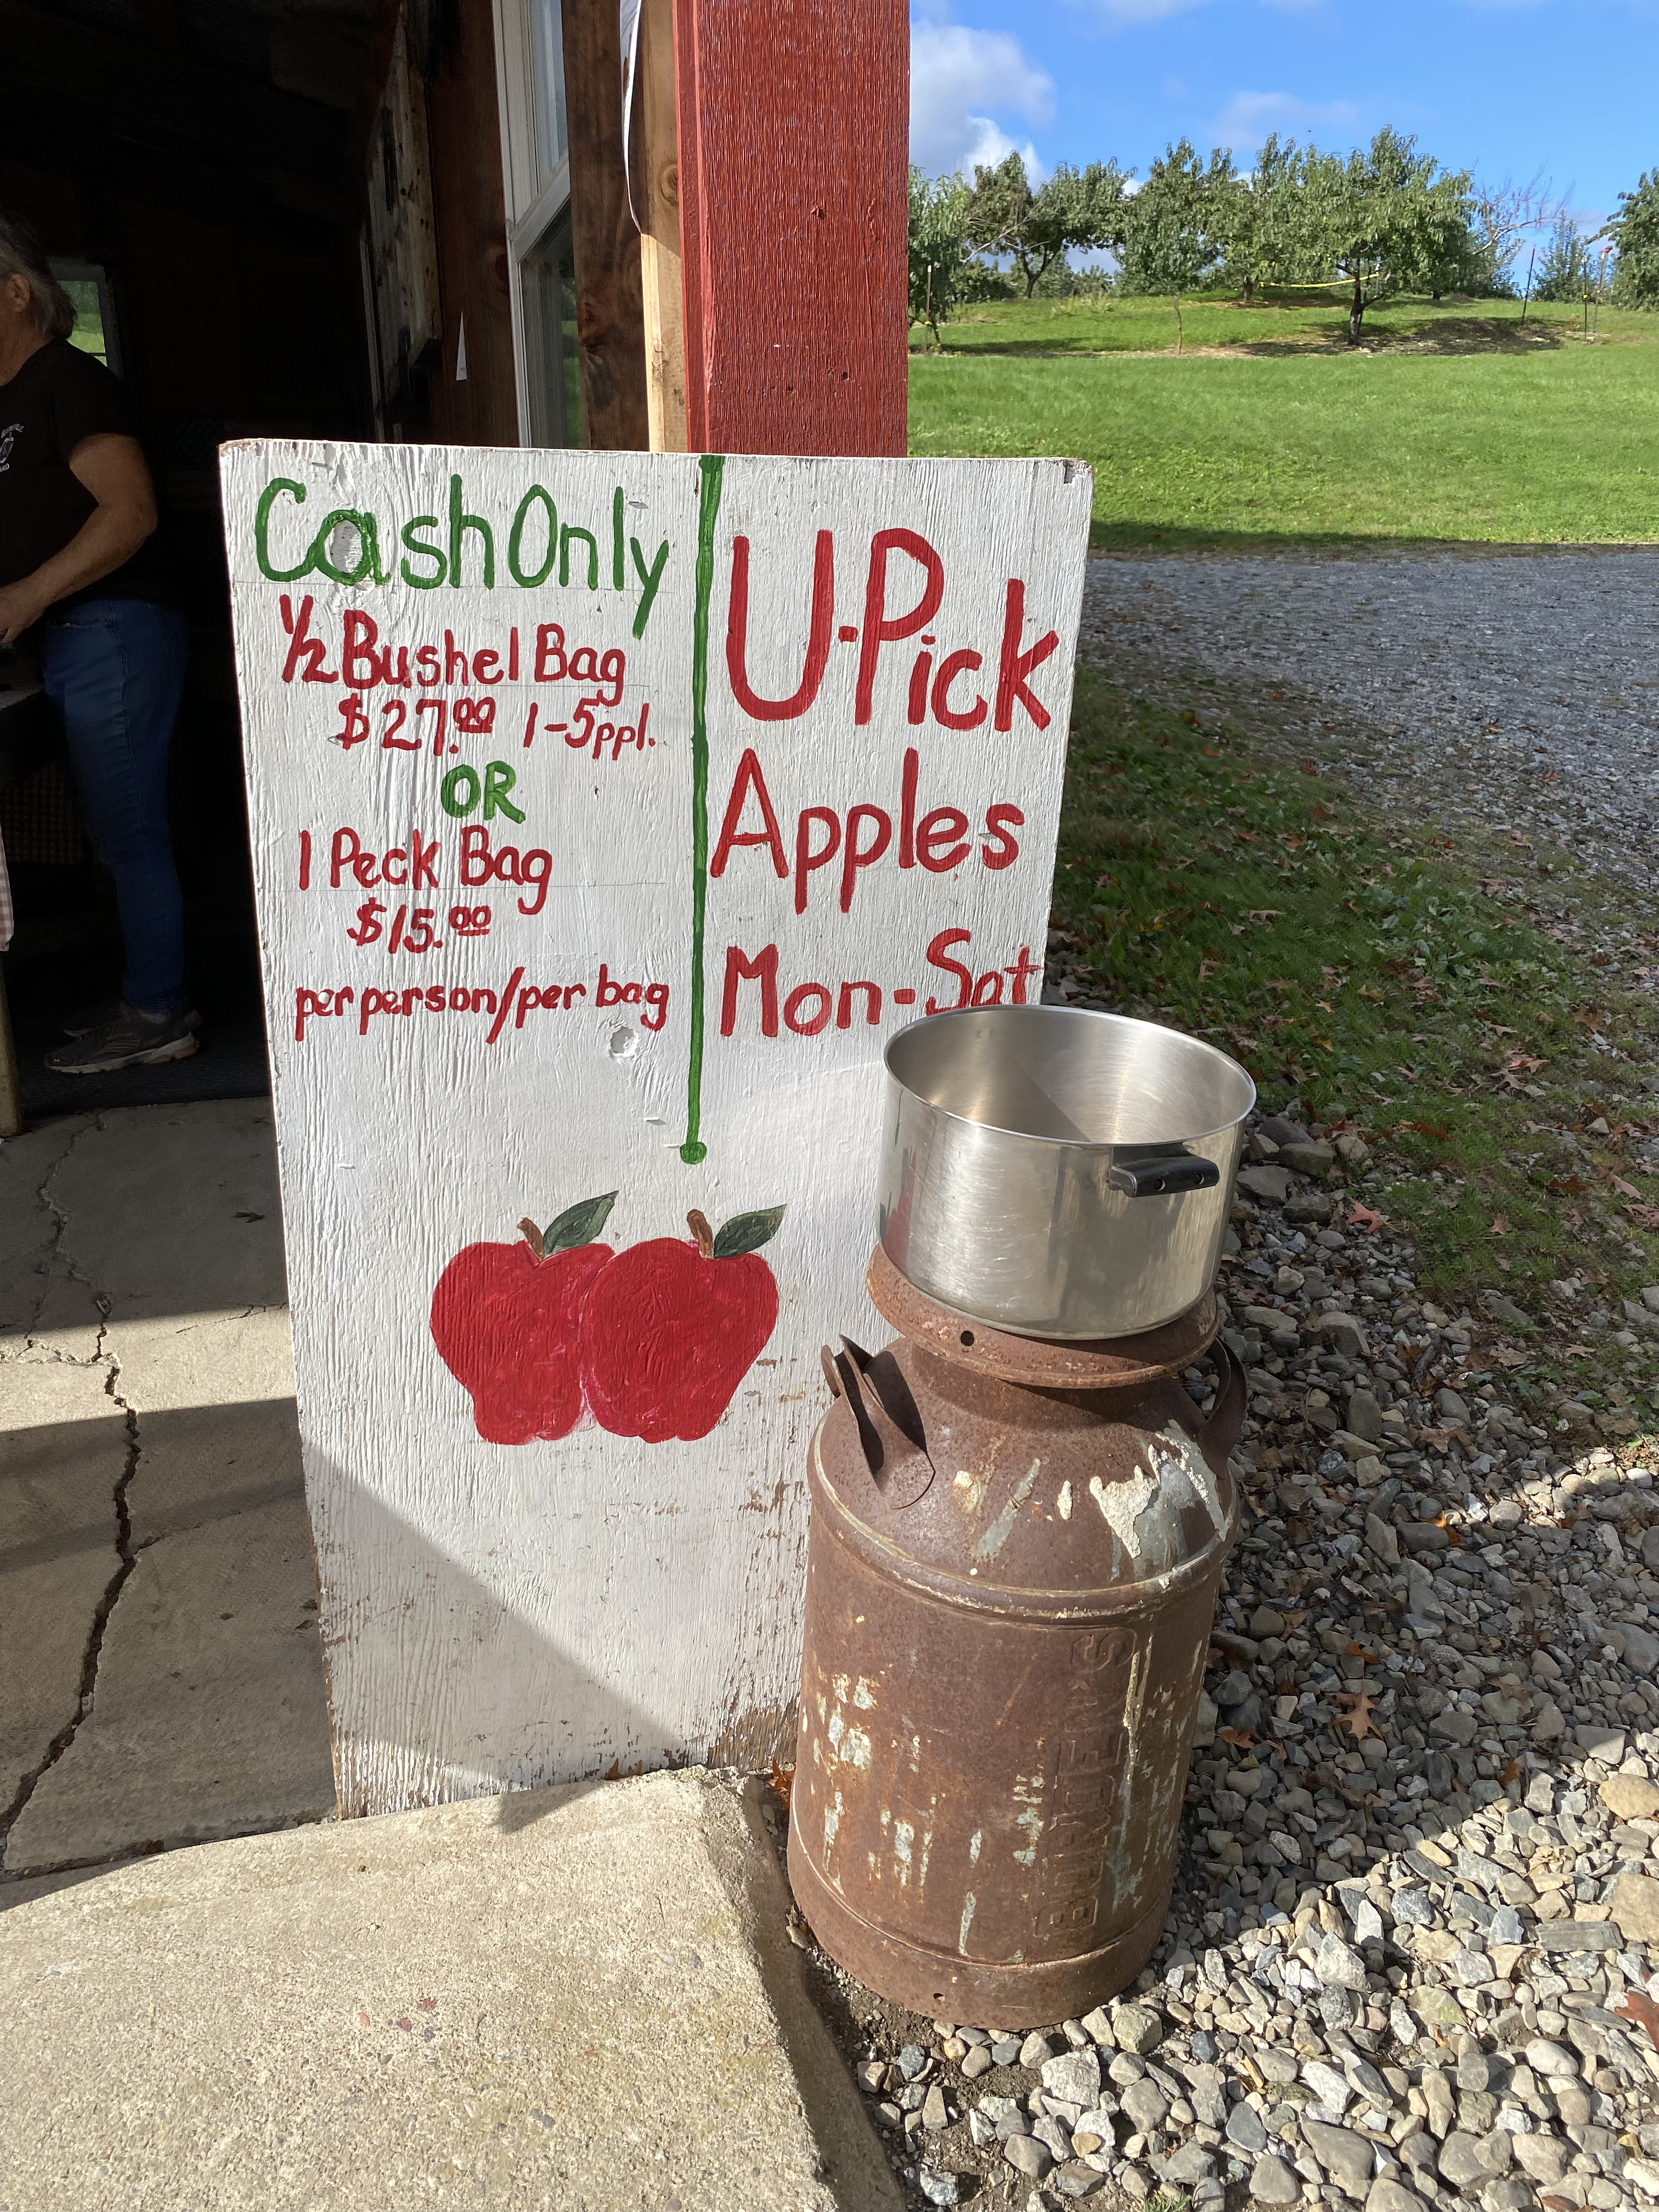 Cash Only
1/2 Bushel Bag
$27.00 1-5ppl.
OR
1 Peck Bag
$15.00
per person/per bag
U-Pick
Apples
Mon-Sat